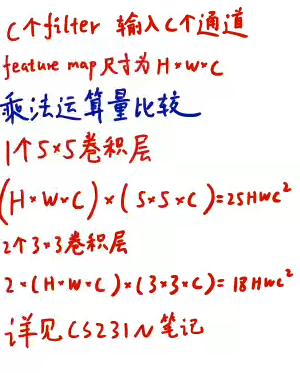 C个filter 输入C个通道
feature map尺寸为H*W*C
乘法运算量比较
1个5*5卷积层
(H*W*C)×(5*5*C)=25HWC²
2个3*3卷积层
2*(H*W*C)*(3*3*C)=18HWC²
详见CS231N笔记